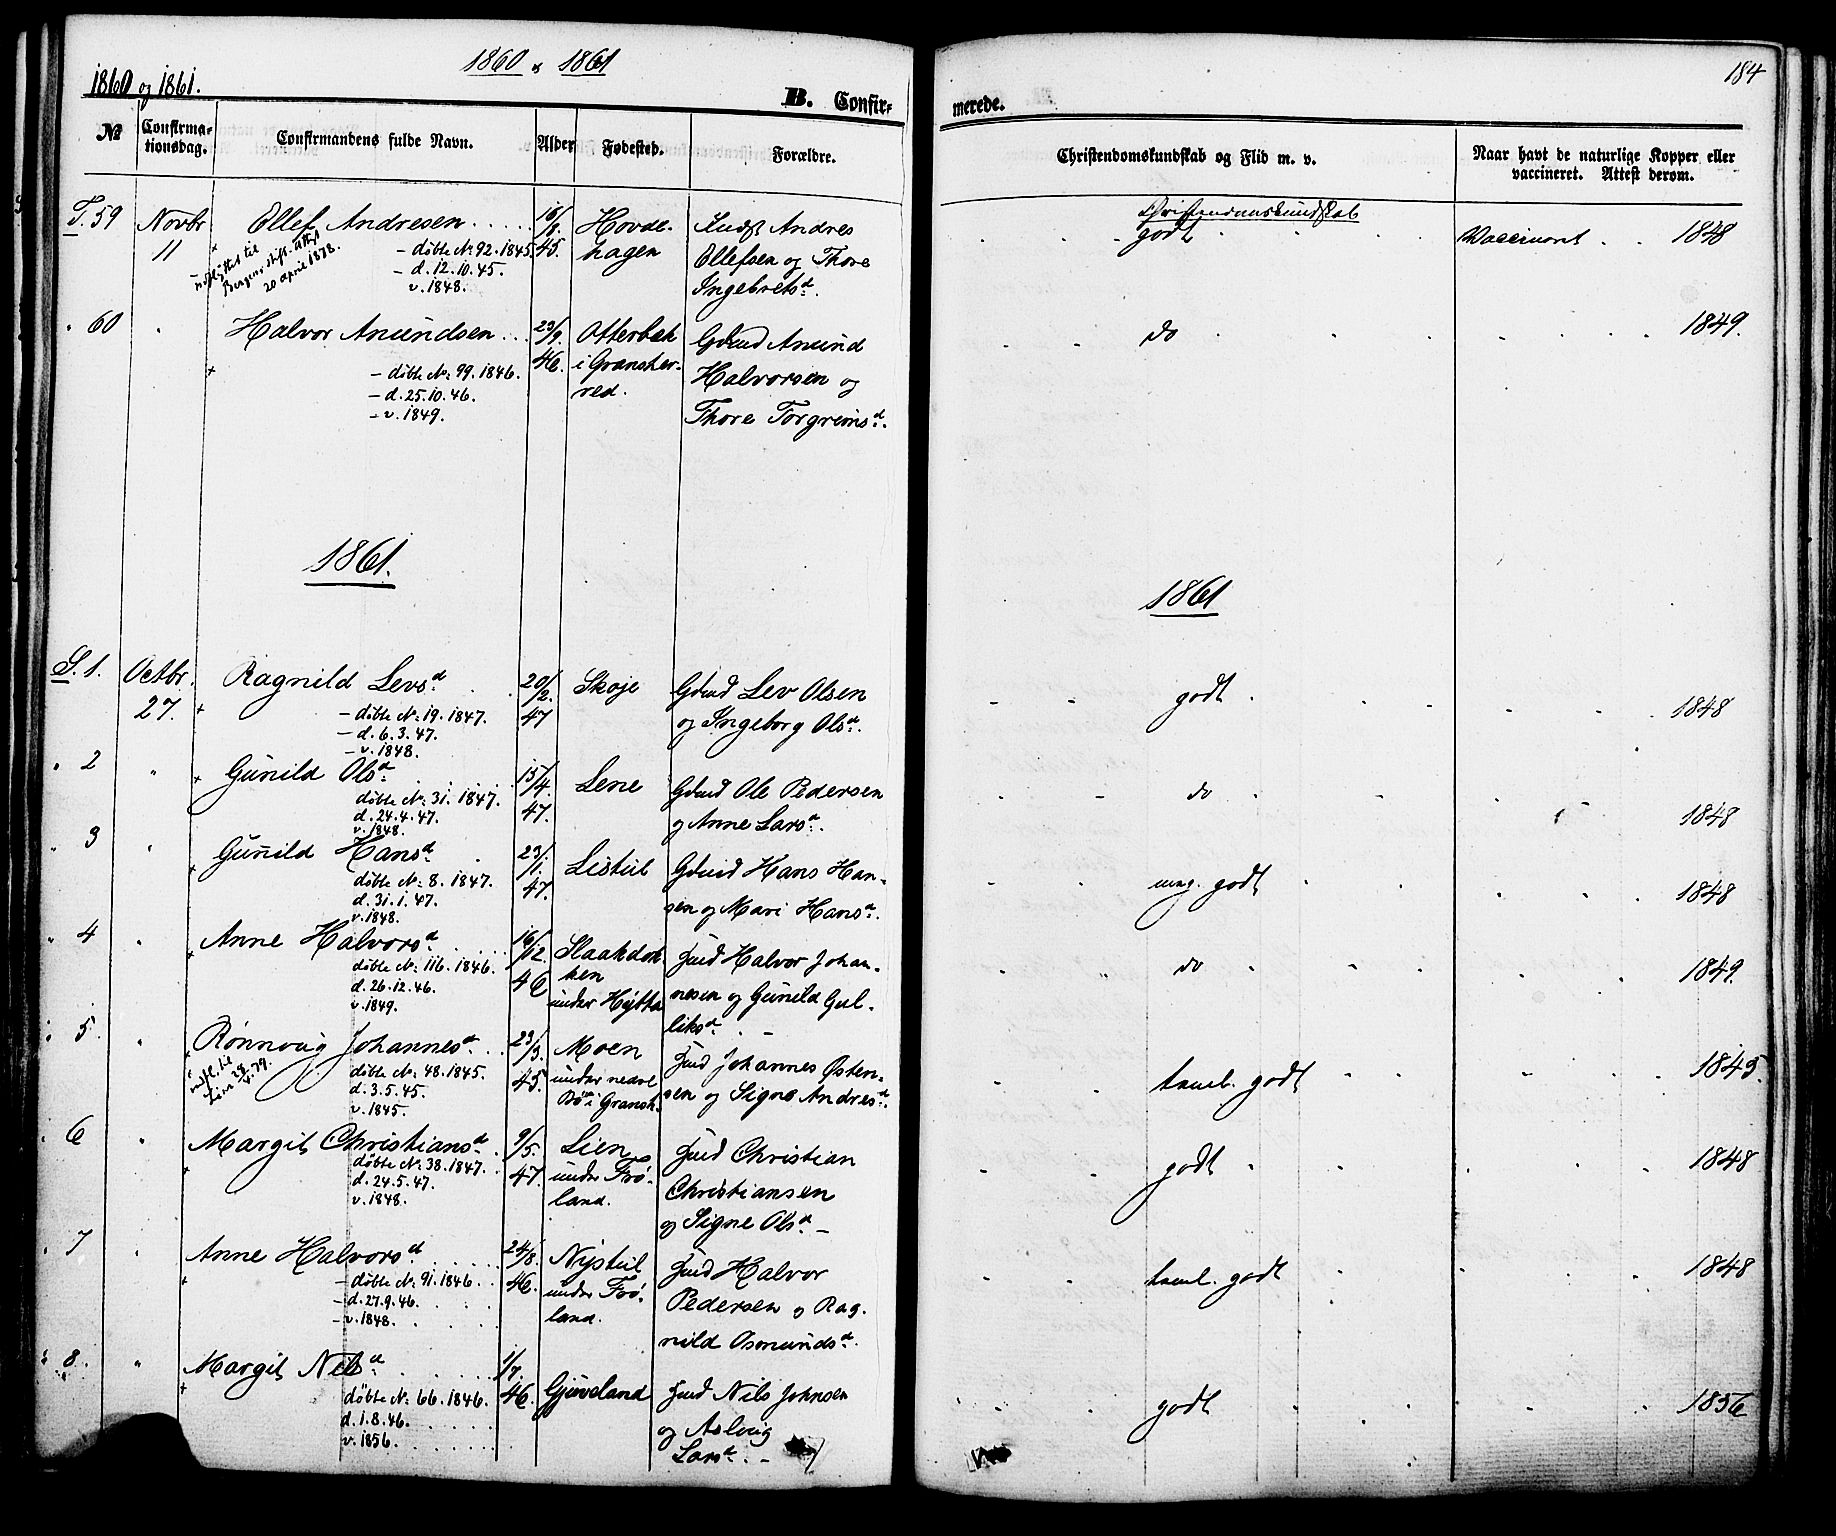 1860 & 1861
1860 og 1861.
B. Confir-
merede.
184
№
Confirma-
tionsdag.
Confirmandens fulde Navn.
Alder
Fødested.
Forældre.
Christendomskundskab og Flid m. v.
Naar havt de naturlige Kopper eller
vaccineret. Attest derom.
T. 59 Novbr 11 Ellef Andresen
- døbte No: 92. 1845.
- d. 12.10.45.
v. 1848.
udflyttet til
Bergens stift. Attest
20 april 1878.
16/8. 45.
Hovde-
hagen
Andres
Ellefsen og Thore
Ingebretsd.
Christendomskundskab
godt
Vaccineret 1848
" 60 Halvor Anundsen
- døbte No: 99. 1846.
- d. 25.10.46.
- v. 1849.
23/9. 46.
Otterbæk
i Gransher-
red.
Gdmd Anund
Halvorsen og
Thore Torgrimsd.
do
1849.
1861.
1861
S. 1. Octbr. 27. Ragnild Levsd
- døbte No: 19. 1847.
- d. 6.3.47.
- v. 1848.
20/2. 47
Skoje
Gdmd Lev Olsen
og Ingeborg Olsd.
godt
1848
" 2 " Gunild Olsd
døbte No: 31. 1847.
d. 24.4.47.
v. 1848.
15/4. 47.
Lene
Gdmd Ole Pedersen
og Anne Larsd.
do
1848
" 3 " Gunild Hansd
døbte No: 8. 1847.
d. 31.1.47.
v. 1848.
23/1. 47.
Listul
Gdmd Hans Han-
sen og Mari Hansd.
meg. godt
1848
" 4 " Anne Halvorsd
døbte No: 116. 1846.
d. 26.12.46.
v. 1849.
16/12 46
Slaakdok-
ken
under Hytta
Huusmd Halvor Johan-
nesen og Gunild Gul-
liksd.
do
1849.
" 5 " Rønnoug Johannesd
døbte No: 48. 1845.
d. 3.5.45.
v. 1845.
23/3. 45.
Moen
under nedre
Bø i Gransh.
Hmd Johannes Østen-
sen og Signe Andresd.
taal. godt
1845.
" 6 " Margit Christiansd
døbte No: 38. 1847.
d. 24.5.47.
v. 1848.
9/5. 47.
Lien
under Frø-
land.
Hmd Christian
Christiansen
og Signe Olsd -
godt
1848
" 7 " Anne Halvorsd
- døbte No: 91. 1846.
- d. 27.9.46.
- v. 1848.
24/8. 46.
Nystul
under Frø-
land.
Hmd Halvor
Pedersen og Rag-
nild Osmundsd.
taal. godt
1848
" 8. " Margit Nilsd
døbte No: 66. 1846.
d. 1.8.46.
v. 1856.
1/7. 46.
Gjuveland
Hmd Nils Johnsen
og Aslaug
Larsd. -
godt
1856